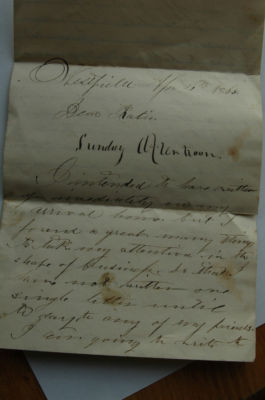 Westfield Apr 10th 186
Dear Katie
Sunday Afternoon.
I intended to have written
immediately on my
arrival home but I
found a great many things
to take my attention in the
shape of business So that I
have not written one
single letter until
to any of my friends
I am going to write to